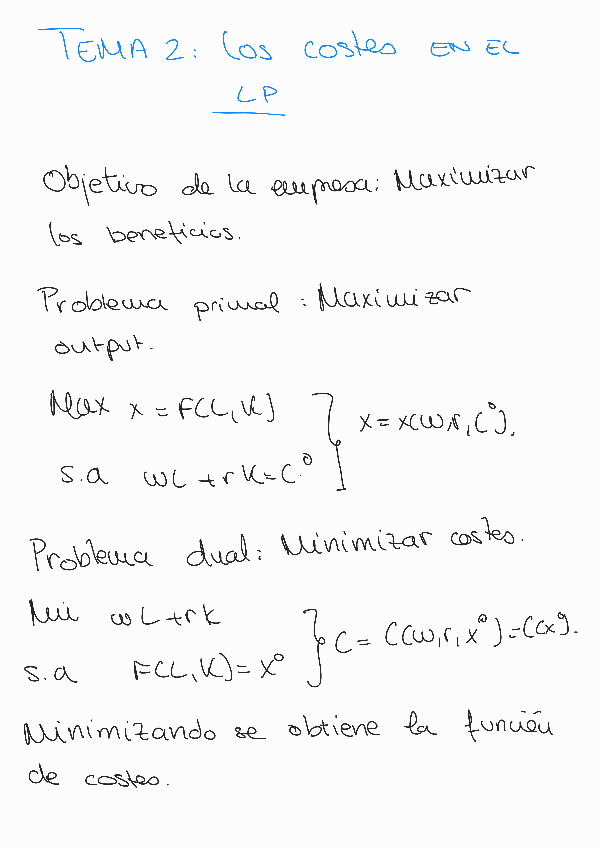 TEMA 2: Los costes EN EL
LP
Objetivo de la empresa: Maximizar
los beneficios.
Problema primal: Maximizar
output.
Max x = F(L,K) } x = x(w,r,C⁰).
s.a wL + rK = C⁰
Problema dual: Minimizar costes.
Min wL + rK } C = C(w,r,x⁰) = C(x⁰).
s.a F(L,K) = x⁰
Minimizando se obtiene la función
de costes.